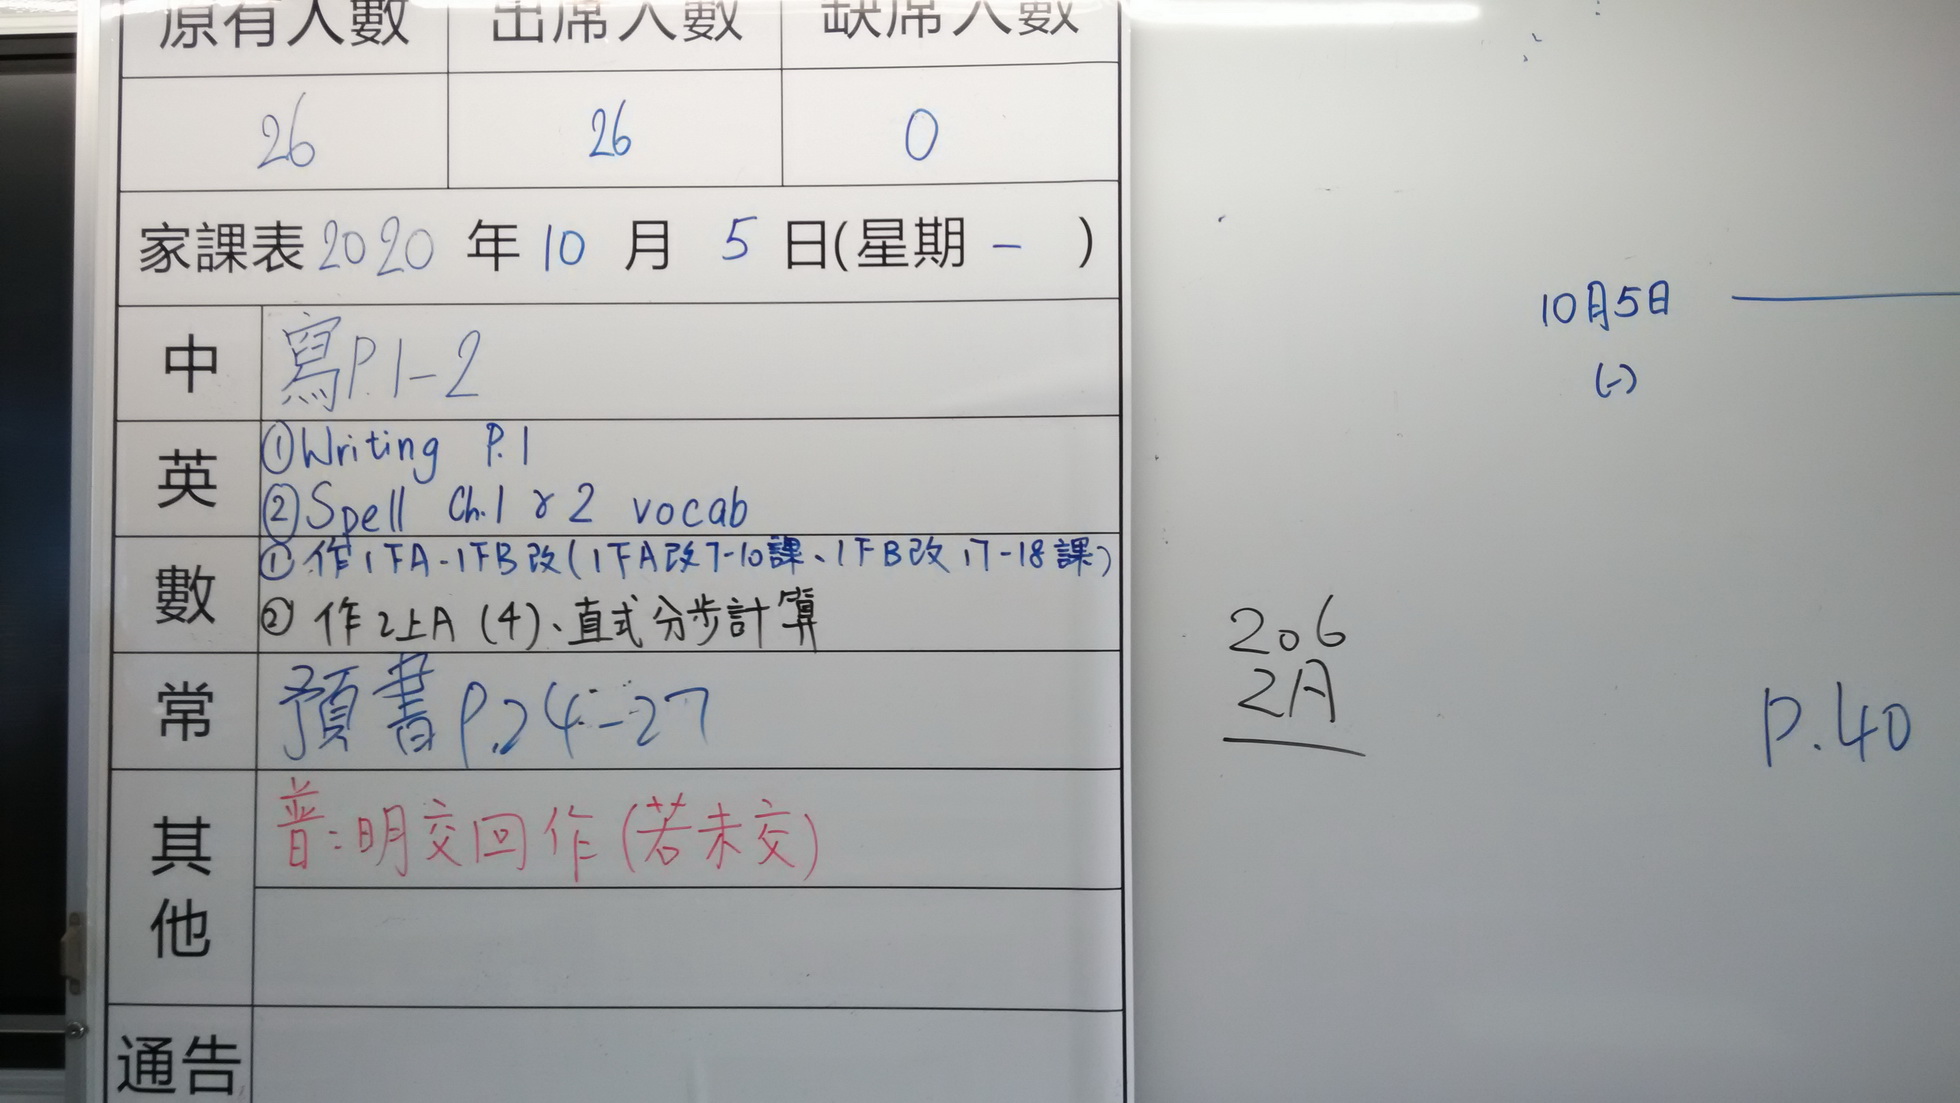 原有人數 出席人數 缺席人數
26 26 0
家課表 2020 年 10 月 5 日(星期 一 )
中 寫P.1-2
英 ①Writing P.1
②Spell Ch.1 & 2 vocab
數 ① 作1下A-1下B改(1下A改7-10課、1下B改17-18課)
② 作2上A (4)、直式分步計算
常 預書P.24-27
其他 普:明交回作(若未交)
通告
10月5日
(一)
206
2A
P.40